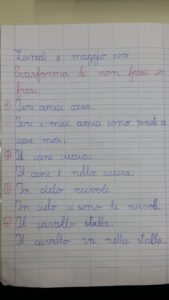 Lunedì 8 maggio 2017
Trasforma le non frasi in
frasi.
① Ieri amici casa.
Ieri i miei amici sono venuti a
casa mia.
② Il cane cuccia.
Il cane è nella cuccia.
③ In cielo nuvole.
In cielo ci sono le nuvole.
④ Il cavallo stalla.
Il cavallo va nella stalla.